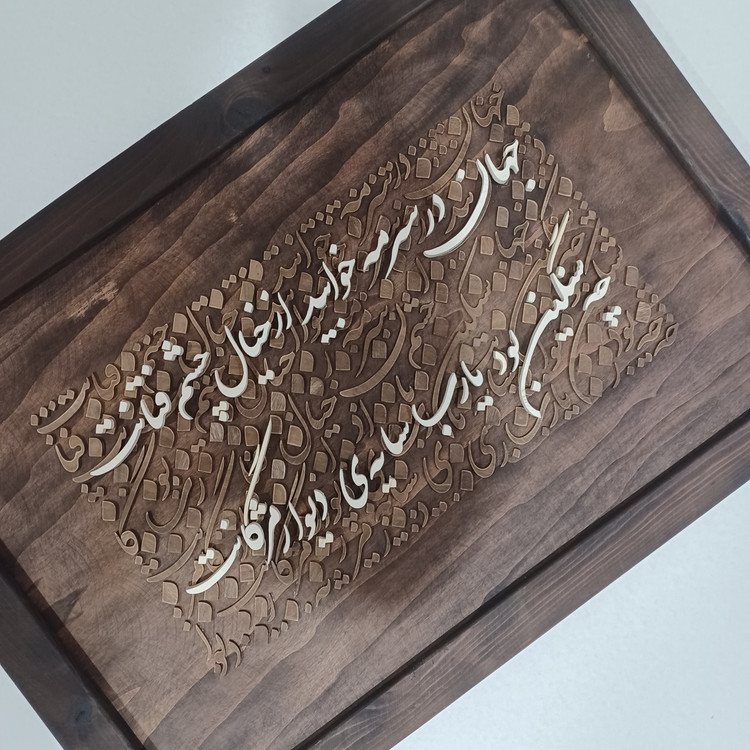 جهان در سرمه خوابید از خیال چشم فتانت
چه سنگین بود یارب سایه‌ی دیوار مژگانت